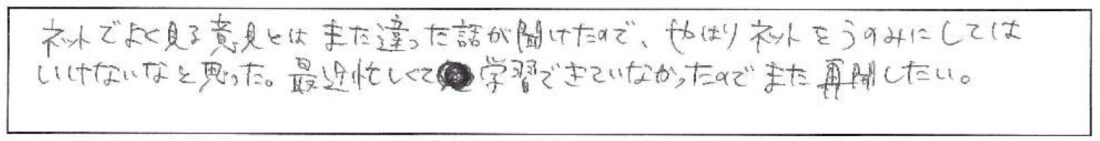 ネットでよく見る意見とはまた違った話が聞けたので、やはりネットをうのみにしては
いけないなと思った。最近忙しくて学習できていなかったのでまた再開したい。